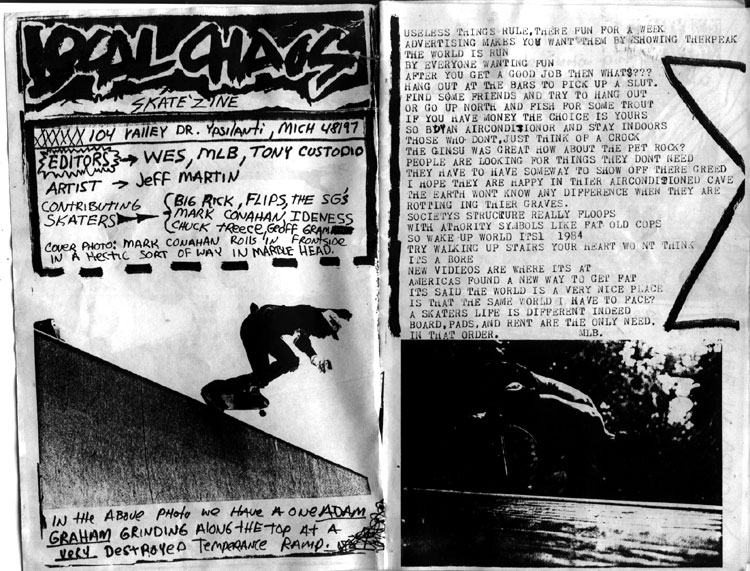 LOCAL CHAOS
SKATE'ZINE
104 VALLEY DR. YPSILANTI, MICH 48197
EDITORS → WES, MLB, TONY CUSTODIO
ARTIST → JEFF MARTIN
CONTRIBUTING SKATERS → BIG RICK, FLIPS, THE SG'S
MARK CONAHAN, IDENESS
CHUCK TREECE, GEOFF GRAHAM
COVER PHOTO: MARK CONAHAN ROLLS IN FRONTSIDE
IN A HECTIC SORT OF WAY IN MARBLE HEAD.
IN the ABOVE PHOTO WE HAVE A ONE ADAM
GRAHAM GRINDING ALONG THE TOP AT A
VERY DESTROYED TEMPERANCE RAMP.
USELESS THINGS RULE,THERE FUN FOR A WEEK
ADVERTISING MAKES YOU WANT THEM BY SHOWING THERPEAK
THE WORLD IS RUN
BY EVERYONE WANTING FUN
AFTER YOU GET A GOOD JOB THEN WHAT$???
HANG OUT AT THE BARS TO PICK UP A SLUT.
FIND SOME FRIENDS AND TRY TO HANG OUT
OR GO UP NORTH AND FISH FOR SOME TROUT
IF YOU HAVE MONEY THE CHOICE IS YOURS
SO BUYAN AIRCONDISIONOR AND STAY INDOORS
THOSE WHO DONT,JUST THINK OF A CROCK
THE GINSU WAS GREAT HOW ABOUT THE PET ROCK?
PEOPLE ARE LOOKING FOR THINGS THEY DONT NEED
THEY HAVE TO HAVE SOMEWAY TO SHOW OFF THERE GREED
I HOPE THEY ARE HAPPY IN THIER AIRCONDISIONED CAVE
THE EARTH WONT KNOW ANY DIFFERENCE WHEN THEY ARE
ROTTING ING THIER GRAVES.
SOCIETYS STRUCTURE REALLY FLOOPS
WITH ATHORITY SYMBOLS LIKE FAT OLD COPS
SO WAKE UP WORLD ITS1 1984
TRY WALKING UP STAIRS YOUR HEART WO NT THINK
ITS A BORE
NEW VIDIEOS ARE WHERE ITS AT
AMERICAS FOUND A NEW WAY TO GET FAT
ITS SAID THE WORLD IS A VERY NICE PLACE
IS THAT THE SAME WORLD I HAVE TO FACE?
A SKATERS LIFE IS DIFFERENT INDEED
BOARD,PADS,AND RENT ARE THE ONLY NEED.
IN THAT ORDER. MLB.